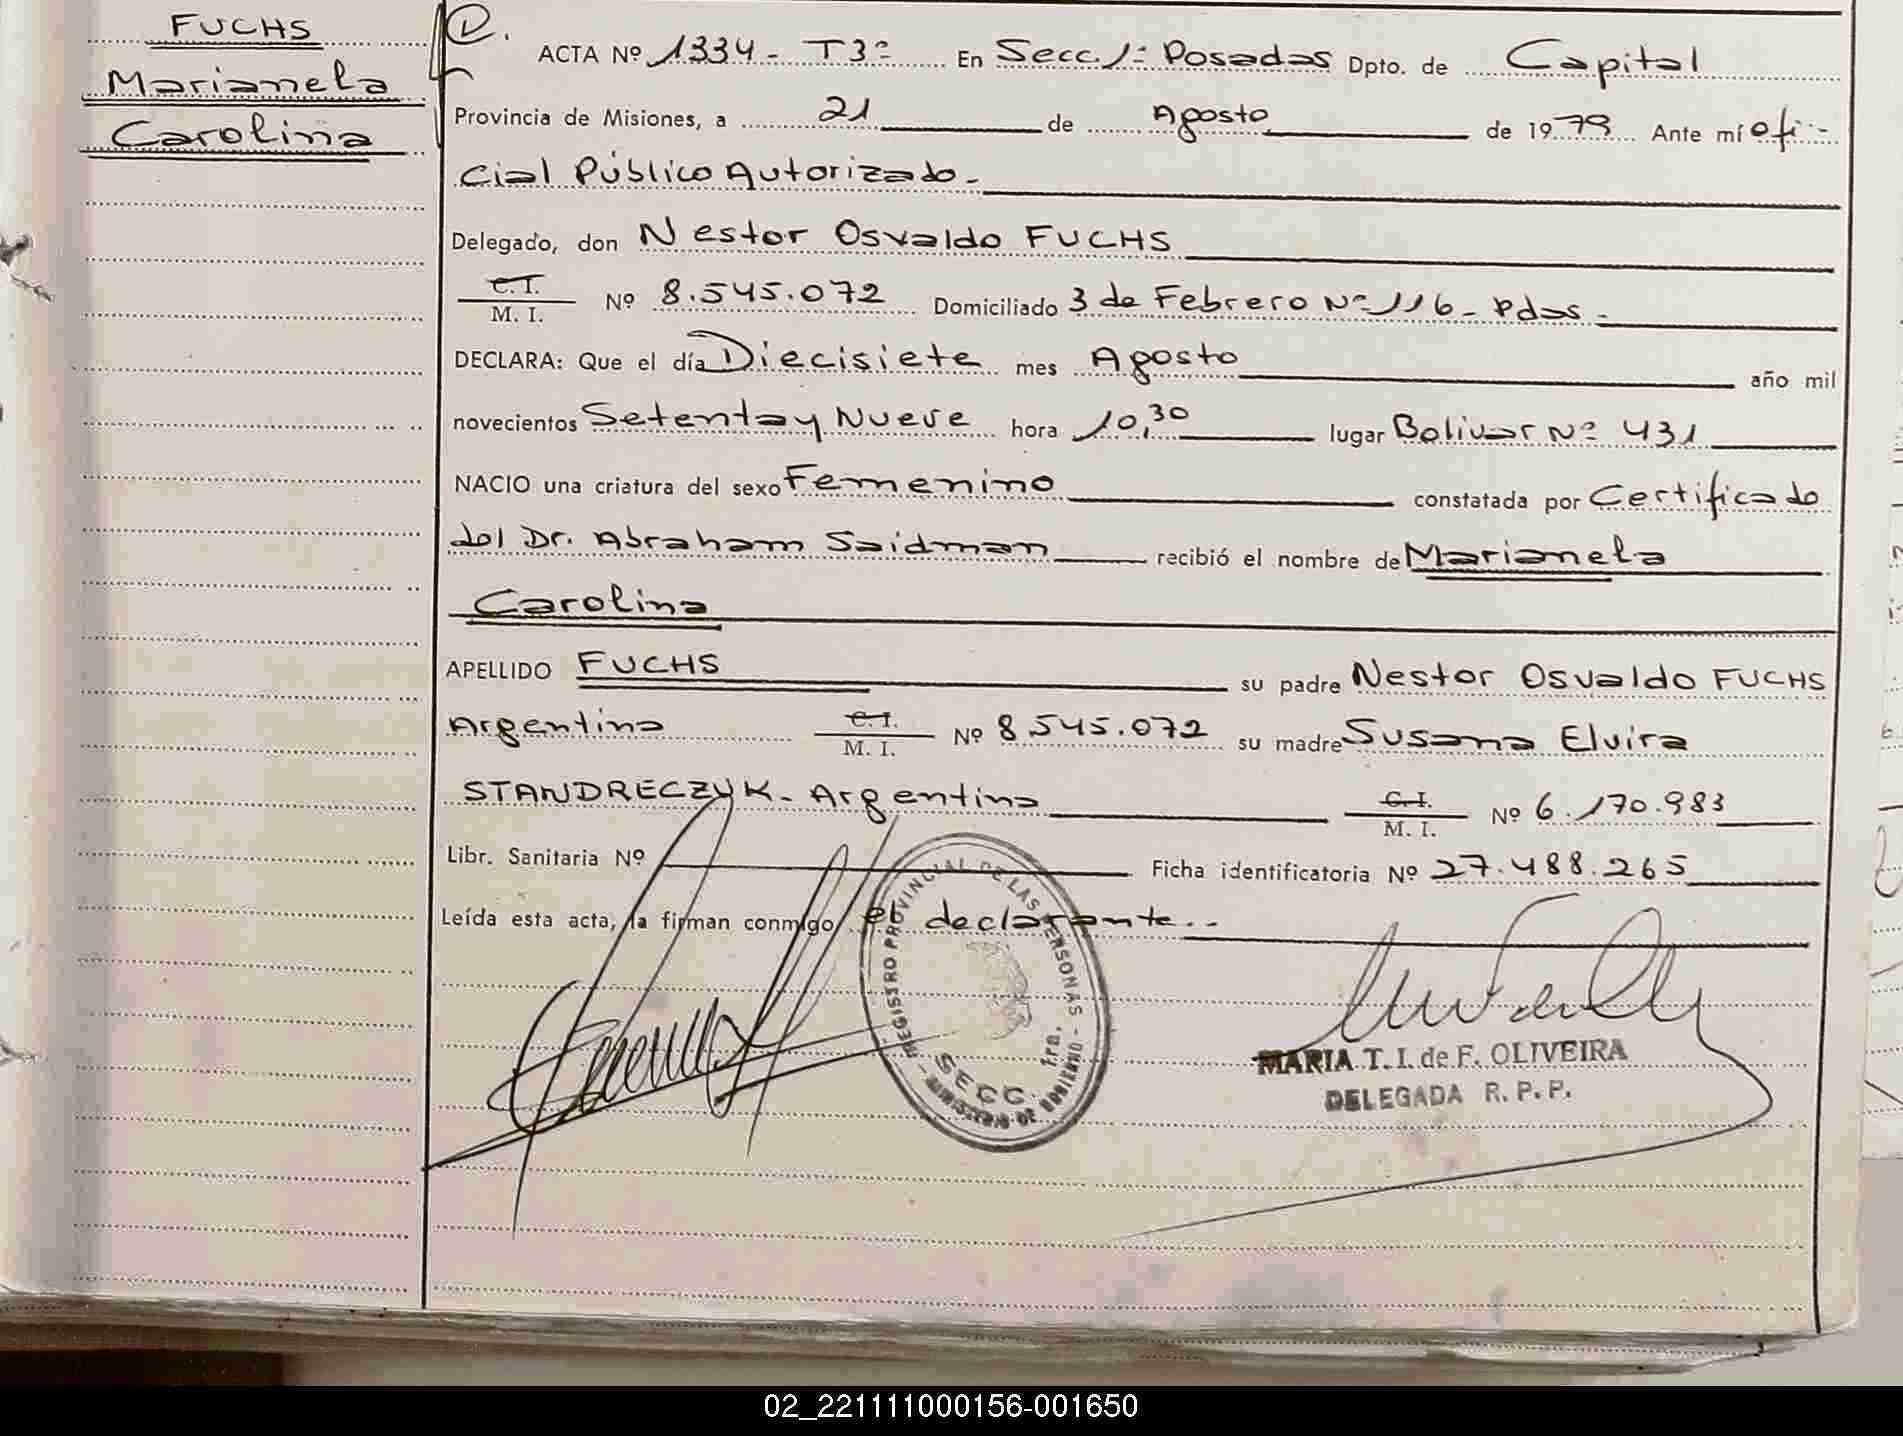 FUCHS
Marianela
Carolina
ACTA Nº 1334 - T3º En Secc. 1ª Posadas Dpto. de Capital
Provincia de Misiones, a 21 de Agosto de 1979 Ante mí ofi-
cial Público Autorizado -
Delegado, don Nestor Osvaldo FUCHS
C. I.
M. I. Nº 8.545.072 Domiciliado 3 de Febrero Nº 116 - Pdas -
DECLARA: Que el día Diecisiete mes Agosto año mil
novecientos Setenta y Nueve hora 10,30 lugar Bolivar Nº 431
NACIO una criatura del sexo Femenino constatada por Certificado
del Dr. Abraham Saidman recibió el nombre de Marianela
Carolina
APELLIDO FUCHS su padre Nestor Osvaldo FUCHS
Argentino C. I. M. I. Nº 8.545.072 su madre Susana Elvira
STANDRECZYK - Argentina C. I. M. I. Nº 6.170.983
Libr. Sanitaria Nº Ficha identificatoria Nº 27.488.265
Leída esta acta, la firman conmigo el declarante --
REGISTRO PROVINCIAL DE LAS PERSONAS - MINISTERIO DE GOBIERNO -
SECC. 1ra.
MARIA T. I. de F. OLIVEIRA
DELEGADA R. P. P.
02_221111000156-001650